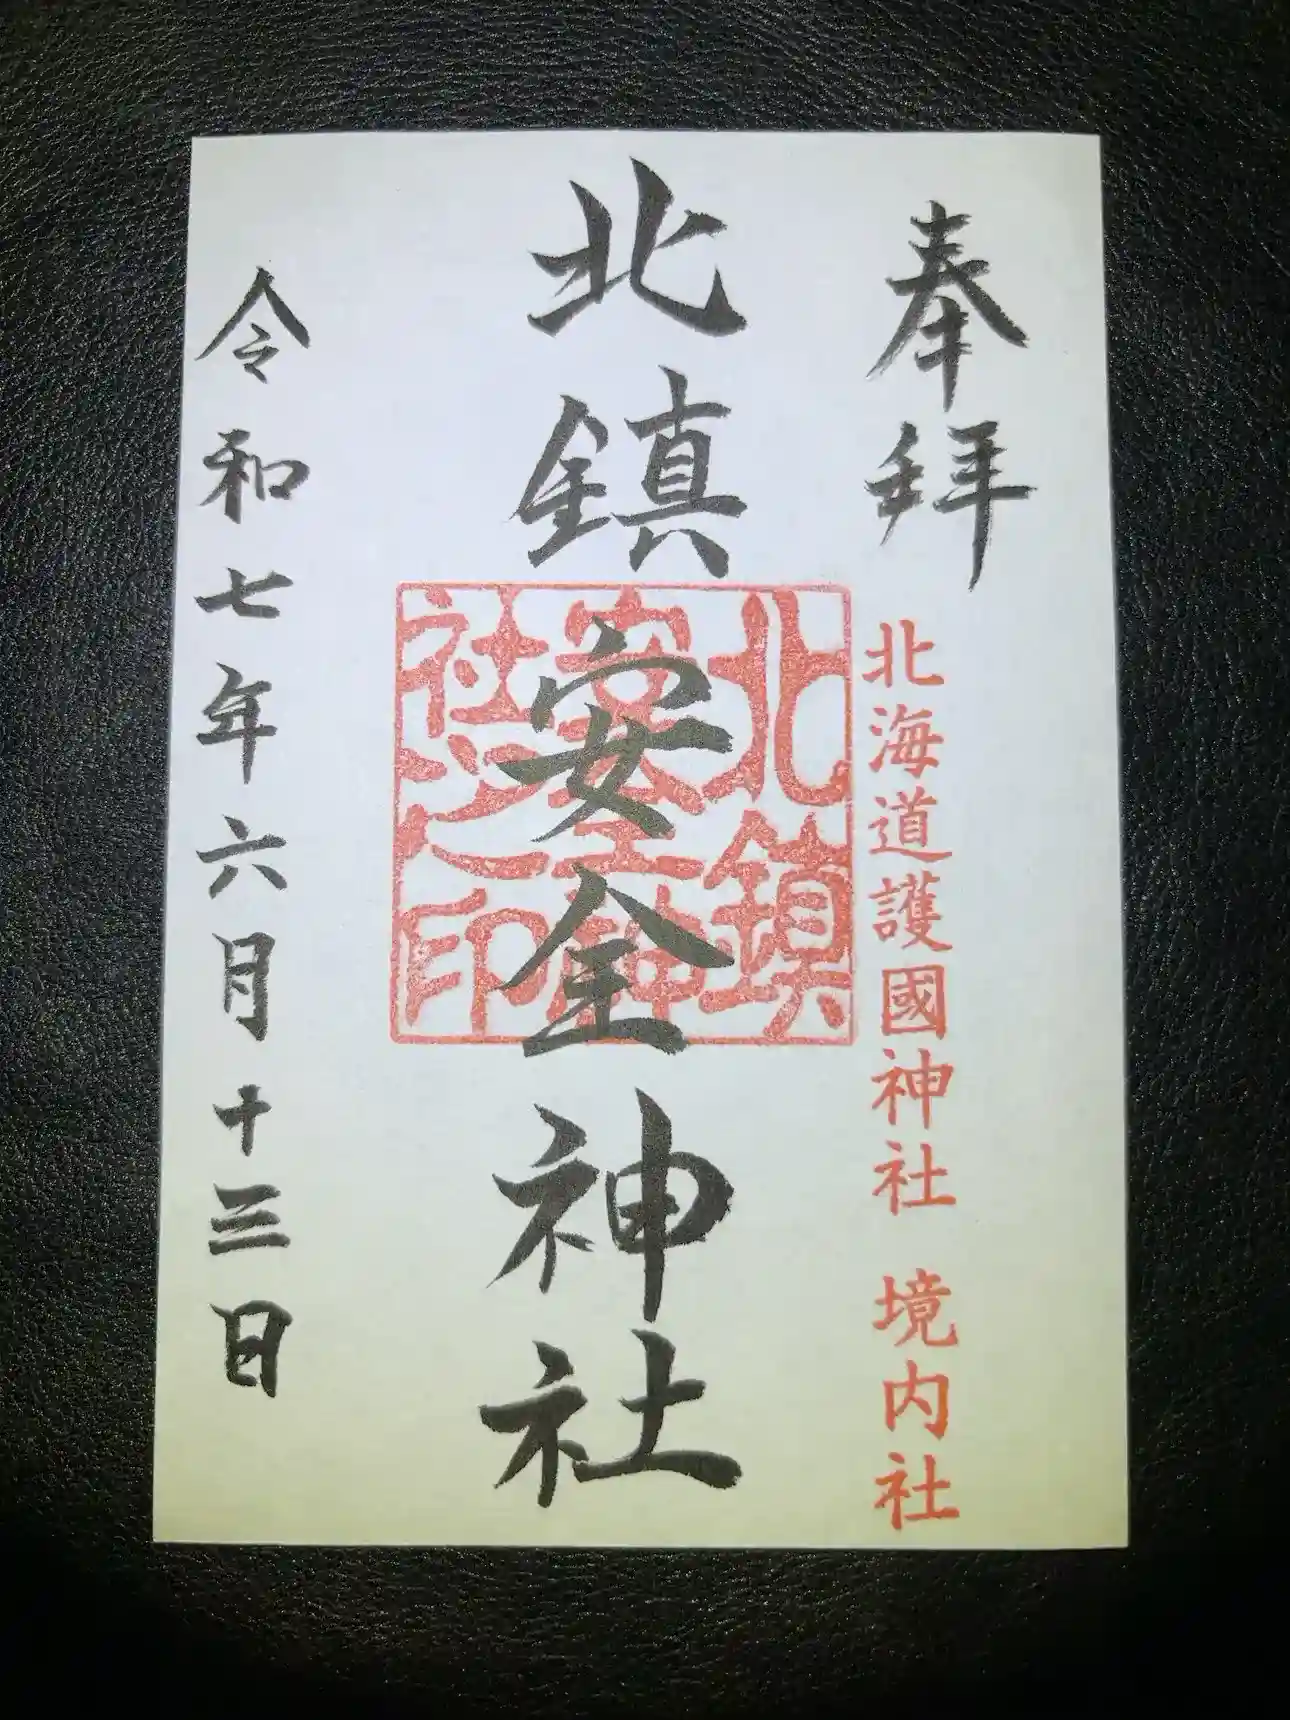 奉拜
北海道護國神社 境内社
北鎮安全神社
北鎮
安全神
社之印
令和七年六月十三日